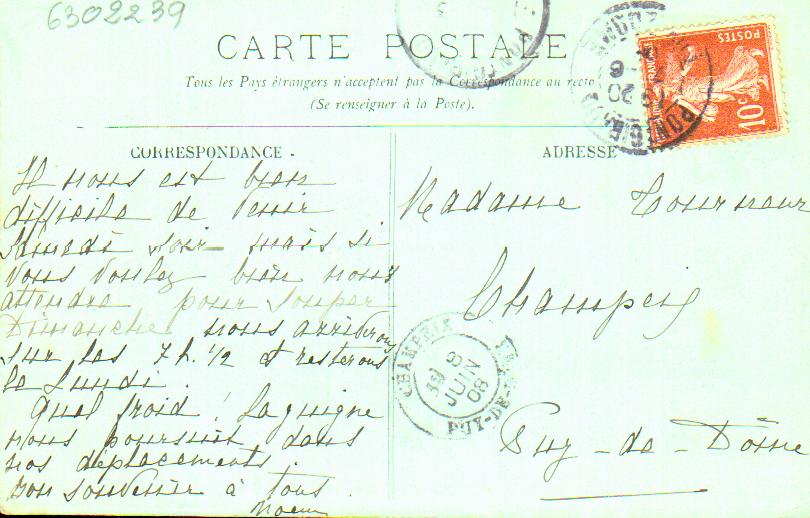 6302239
CARTE POSTALE
Tous les Pays étrangers n'acceptent pas la Correspondance au recto
(Se renseigner à la Poste).
POSTES
10c
CORRESPONDANCE.
ADRESSE
Il nous est bien
difficile de venir
Samedi soir mais si
vous voulez bien nous
attendre pour souper
Dimanche nous arriverons
sur les 7 h. 1/2 et resterons
le Lundi.
Quel froid ! La guigne
nous poursuit dans
nos déplacements.
Bon souvenir à tous.
Madame Tourneur
Champeix
Puy-de-Dôme
CHAMPEIX
8
JUIN
08
PUY-DE-D